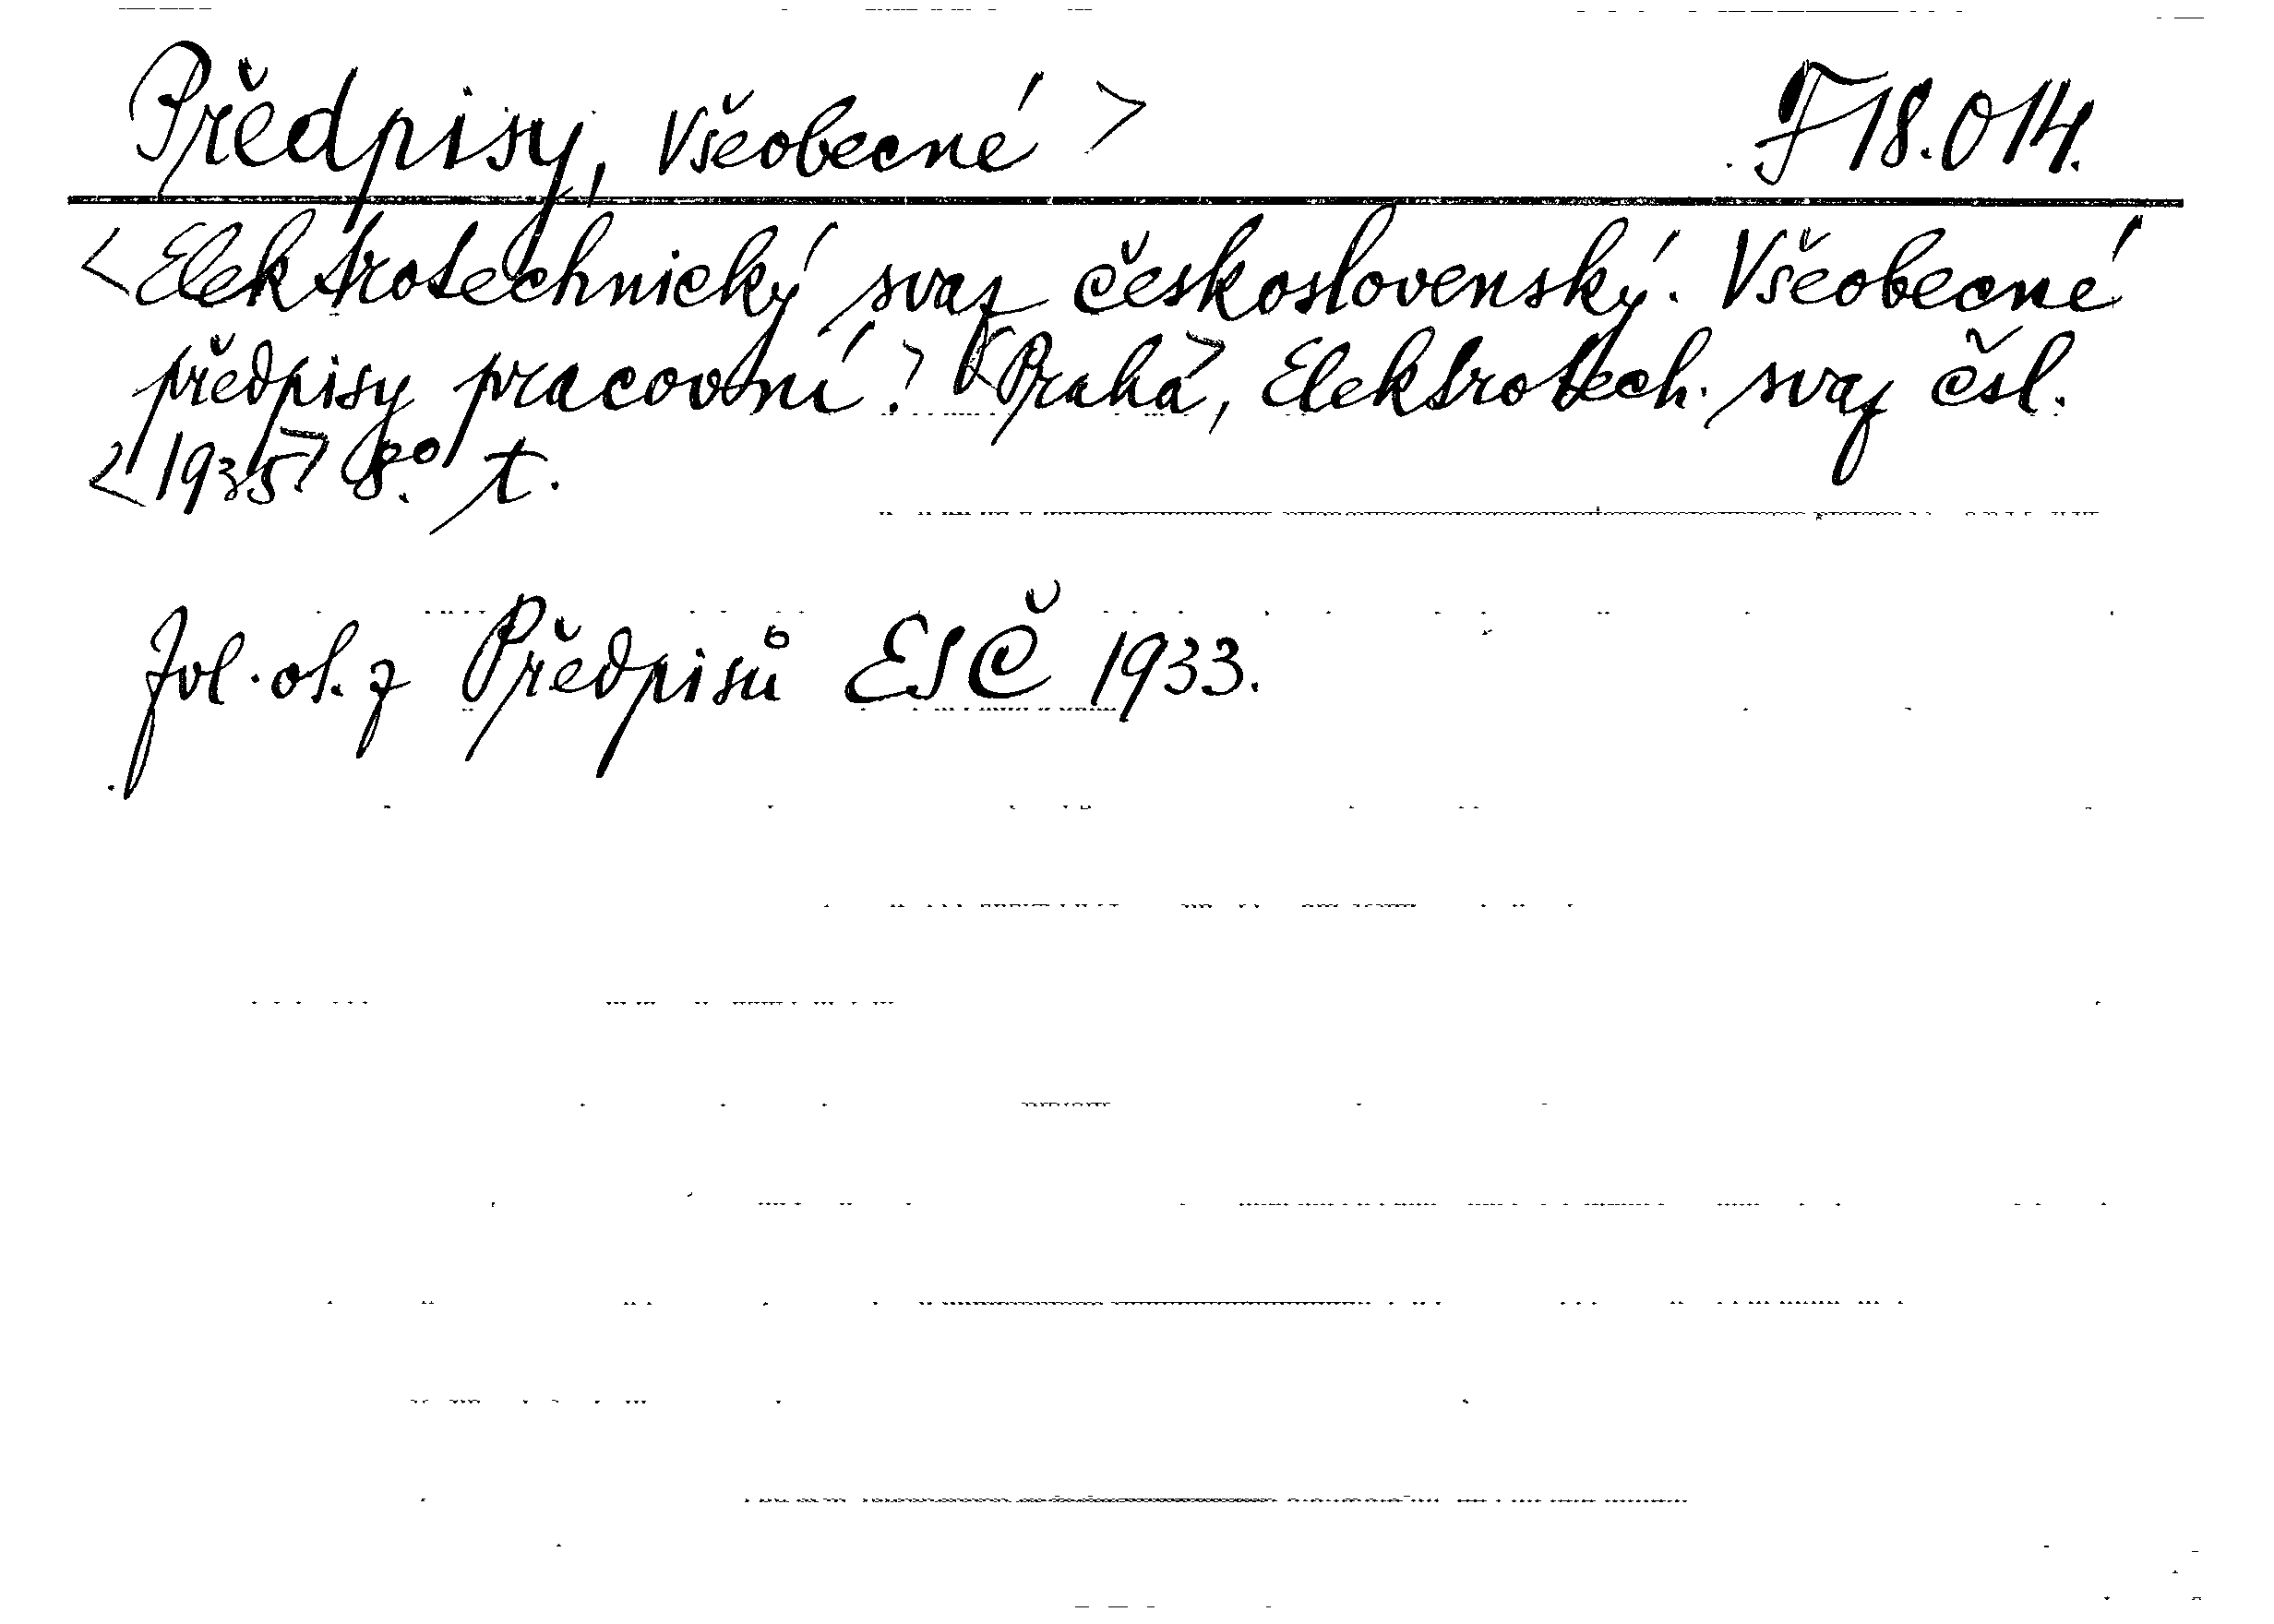 Předpisy, Všeobecné > F 18.014.
<Elektrotechnický svaz československý. Všeobecné
předpisy pracovní.> <Praha>, Elektrotech. svaz čsl.
<1935> 8.° t.
Zvl. ot. z Předpisů ESČ 1933.